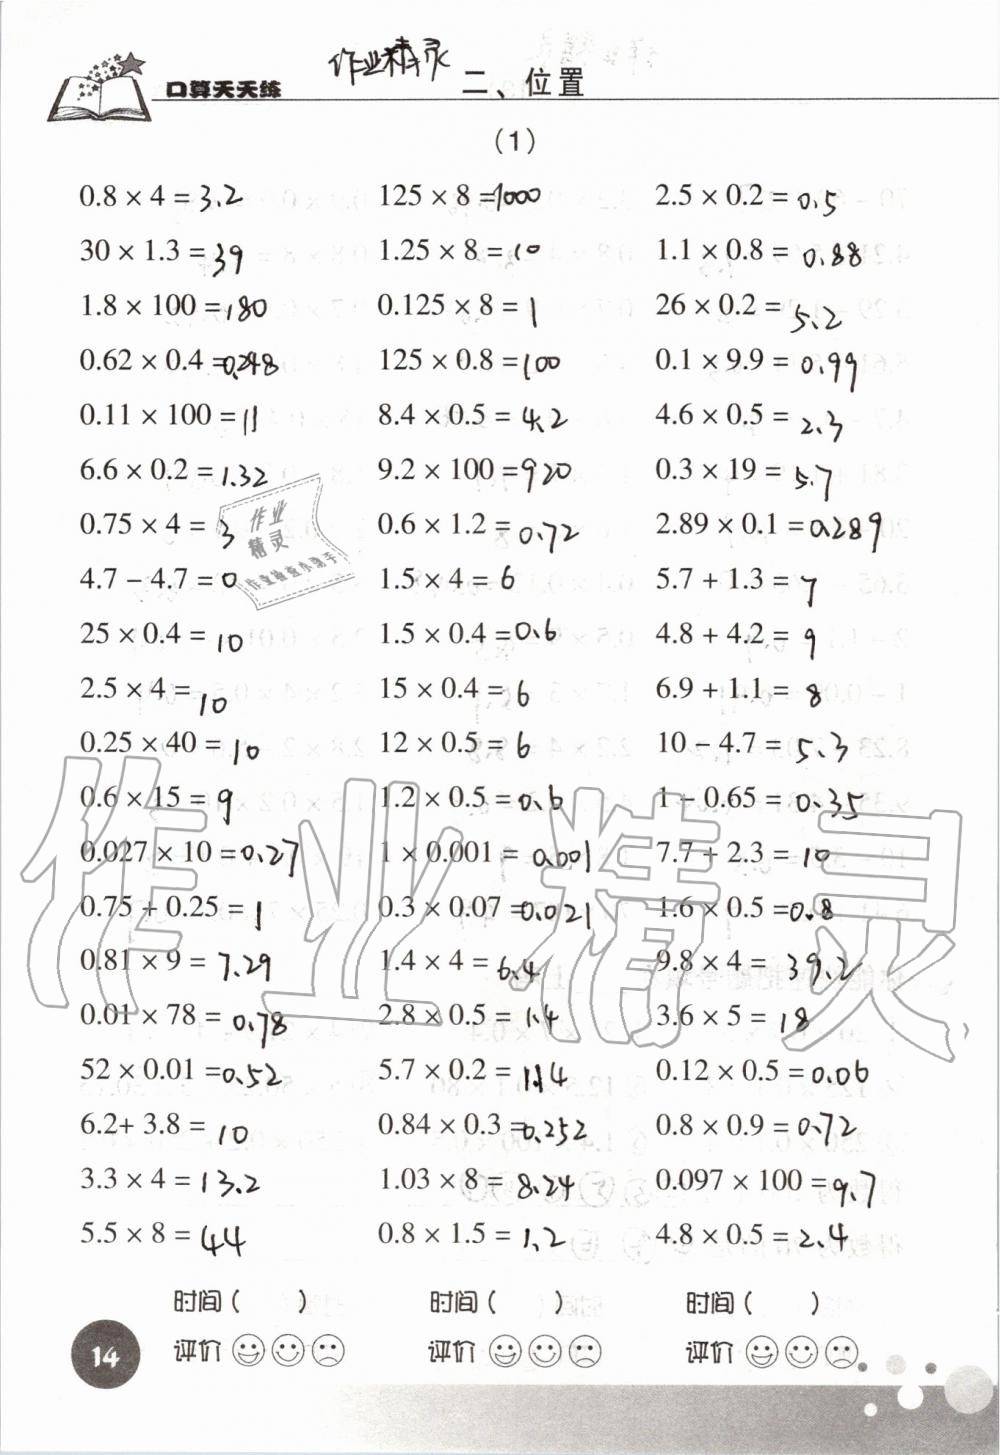 作业精灵
口算天天练
二、位置
(1)
0.8 × 4 = 3.2 125 × 8 = 1000 2.5 × 0.2 = 0.5
30 × 1.3 = 39 1.25 × 8 = 10 1.1 × 0.8 = 0.88
1.8 × 100 = 180 0.125 × 8 = 1 26 × 0.2 = 5.2
0.62 × 0.4 = 0.248 125 × 0.8 = 100 0.1 × 9.9 = 0.99
0.11 × 100 = 11 8.4 × 0.5 = 4.2 4.6 × 0.5 = 2.3
6.6 × 0.2 = 1.32 9.2 × 100 = 920 0.3 × 19 = 5.7
0.75 × 4 = 3 0.6 × 1.2 = 0.72 2.89 × 0.1 = 0.289
4.7 - 4.7 = 0 1.5 × 4 = 6 5.7 + 1.3 = 7
25 × 0.4 = 10 1.5 × 0.4 = 0.6 4.8 + 4.2 = 9
2.5 × 4 = 10 15 × 0.4 = 6 6.9 + 1.1 = 8
0.25 × 40 = 10 12 × 0.5 = 6 10 - 4.7 = 5.3
0.6 × 15 = 9 1.2 × 0.5 = 0.6 1 - 0.65 = 0.35
0.027 × 10 = 0.27 1 × 0.001 = 0.001 7.7 + 2.3 = 10
0.75 + 0.25 = 1 0.3 × 0.07 = 0.021 1.6 × 0.5 = 0.8
0.81 × 9 = 7.29 1.4 × 4 = 6.4 9.8 × 4 = 39.2
0.01 × 78 = 0.78 2.8 × 0.5 = 1.4 3.6 × 5 = 18
52 × 0.01 = 0.52 5.7 × 0.2 = 1.14 0.12 × 0.5 = 0.06
6.2+ 3.8 = 10 0.84 × 0.3 = 0.252 0.8 × 0.9 = 0.72
3.3 × 4 = 13.2 1.03 × 8 = 8.24 0.097 × 100 = 9.7
5.5 × 8 = 44 0.8 × 1.5 = 1.2 4.8 × 0.5 = 2.4
作业
精灵
作业检查小助手
作业精灵
时间 ( ) 时间 ( ) 时间 ( )
评价 评价 评价
14